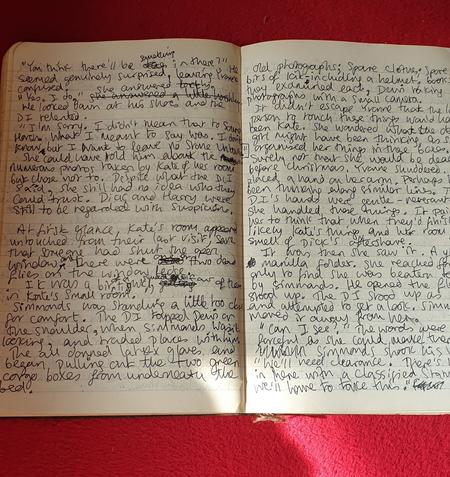 something
"You think there'll be in there?" He
seemed genuinely surprised, leaving
confused. she answered
"Yes, I do."
He looked down at his shoes and the
DI relented.
"I'm sorry. I didn't mean that to sound
What I meant to say was, I
know, but I want to leave no stone
She could have told him about the
numerous photos taken by Kate of her room
but chose not to. Despite what the DI
said, she still had no idea who they
could trust. Dicas and Harry were
still to be regarded with suspicion.
At first glance, Kate's room appeared
untouched from their last visit, save
that someone had shut the open
window. There were two dead
flies on the window ledge.
It was a bit of them
in Kate's small room.
Simmonds was standing a little too close
for comfort. The DI tapped
the shoulder, when Simmonds wasn't
looking, and traded places with him.
The all donned latex gloves and
began pulling out the two green
cargo boxes from underneath the
bed.
old photographs; spare clothes; spare
bits of kit including a helmet,
they examined each, taking
photographs with a small camera.
It didn't escape that the last
person to touch these things would have
been Kate. She wondered what the
girl might have been thinking as she
organised her things in these boxes.
Surely not that she would be dead
before Christmas. shuddered.
placed a hand on her arm. Perhaps
been thinking along similar lines. The
DI's hands were gentle - reverent
she handled these things. It pained
her to think that when they'd finished
likely Kate's things, and her room
smell of Dick's aftershave.
It was then she saw it. A
manilla folder. She reached for
only to find she was beaten to it
by Simmonds. He opened the file
stood up. The DI stood up as
and attempted to get a look. Simmonds
moved it away from her.
"Can I see?" The words were
forceful as she could make them
Simmonds shook his
"We'll need clearance. There's
in here with a classified stamp
we'll have to take this."